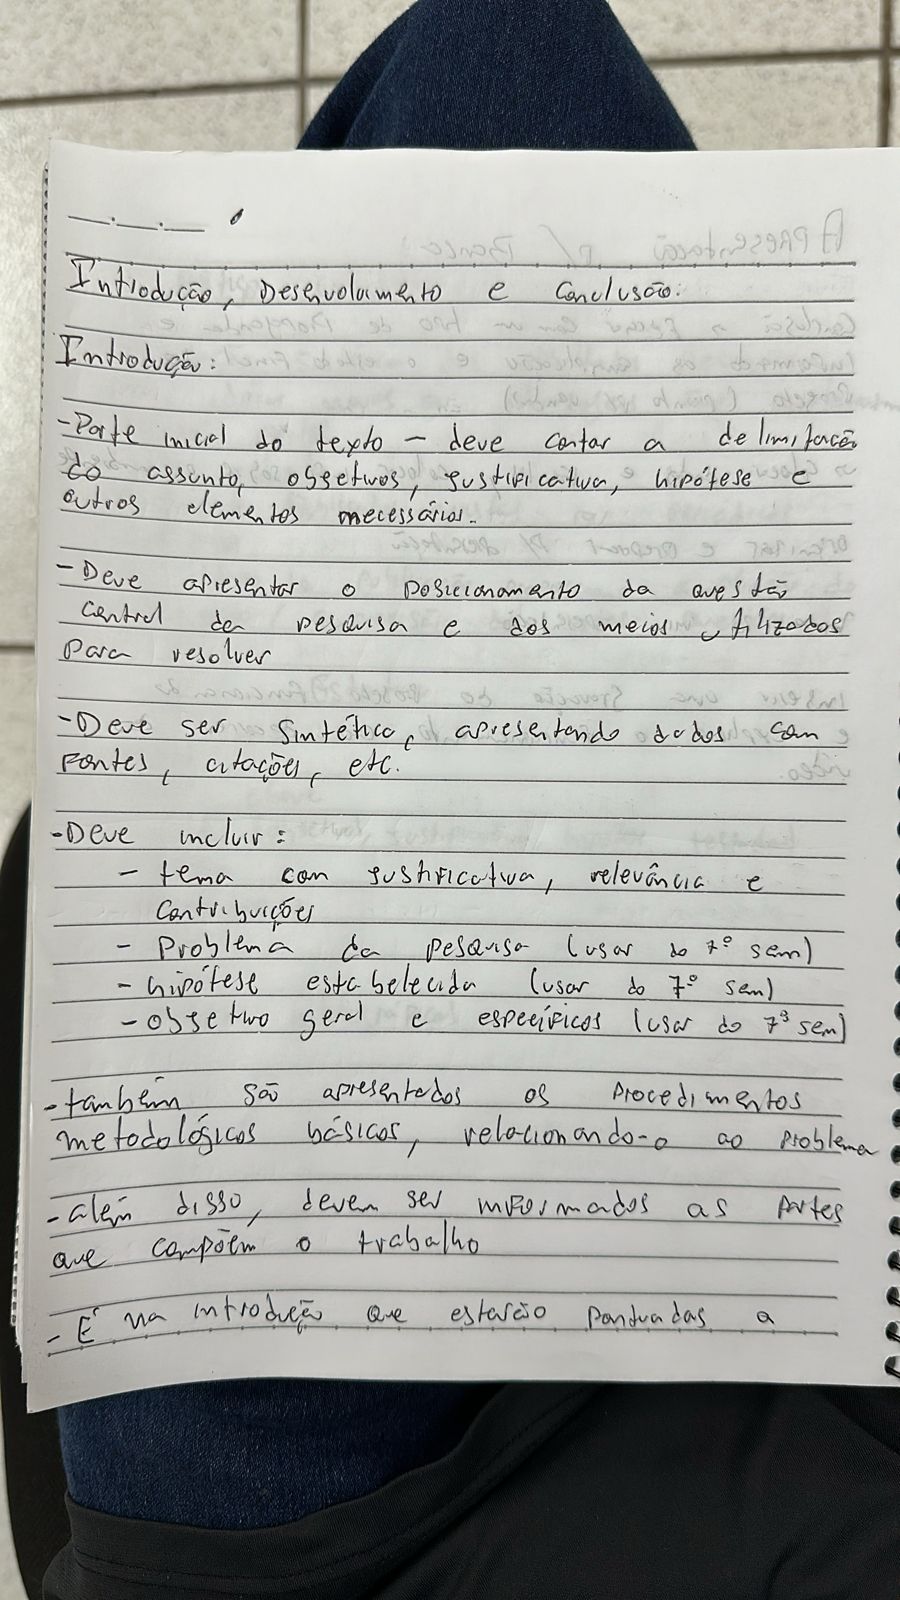 Introdução, Desenvolvimento e Conclusão:
Introdução:
- Parte inicial do texto – deve contar a delimitação
do assunto, objetivos, justificativa, hipótese e
outros elementos necessários.
- Deve apresentar o posicionamento da questão
central da pesquisa e dos meios utilizados
para resolver
- Deve ser sintético, apresentando dados com
fontes, citações, etc.
- Deve incluir:
- tema com justificativa, relevância e
contribuições
- Problema da pesquisa (usar do 7º sem)
- hipótese estabelecida (usar do 7º sem)
- objetivo geral e específicos (usar do 7º sem)
- também são apresentados os procedimentos
metodológicos básicos, relacionando-o ao problema
- além disso, devem ser informados as partes
que compõem o trabalho
- É na introdução que estarão pontuadas a